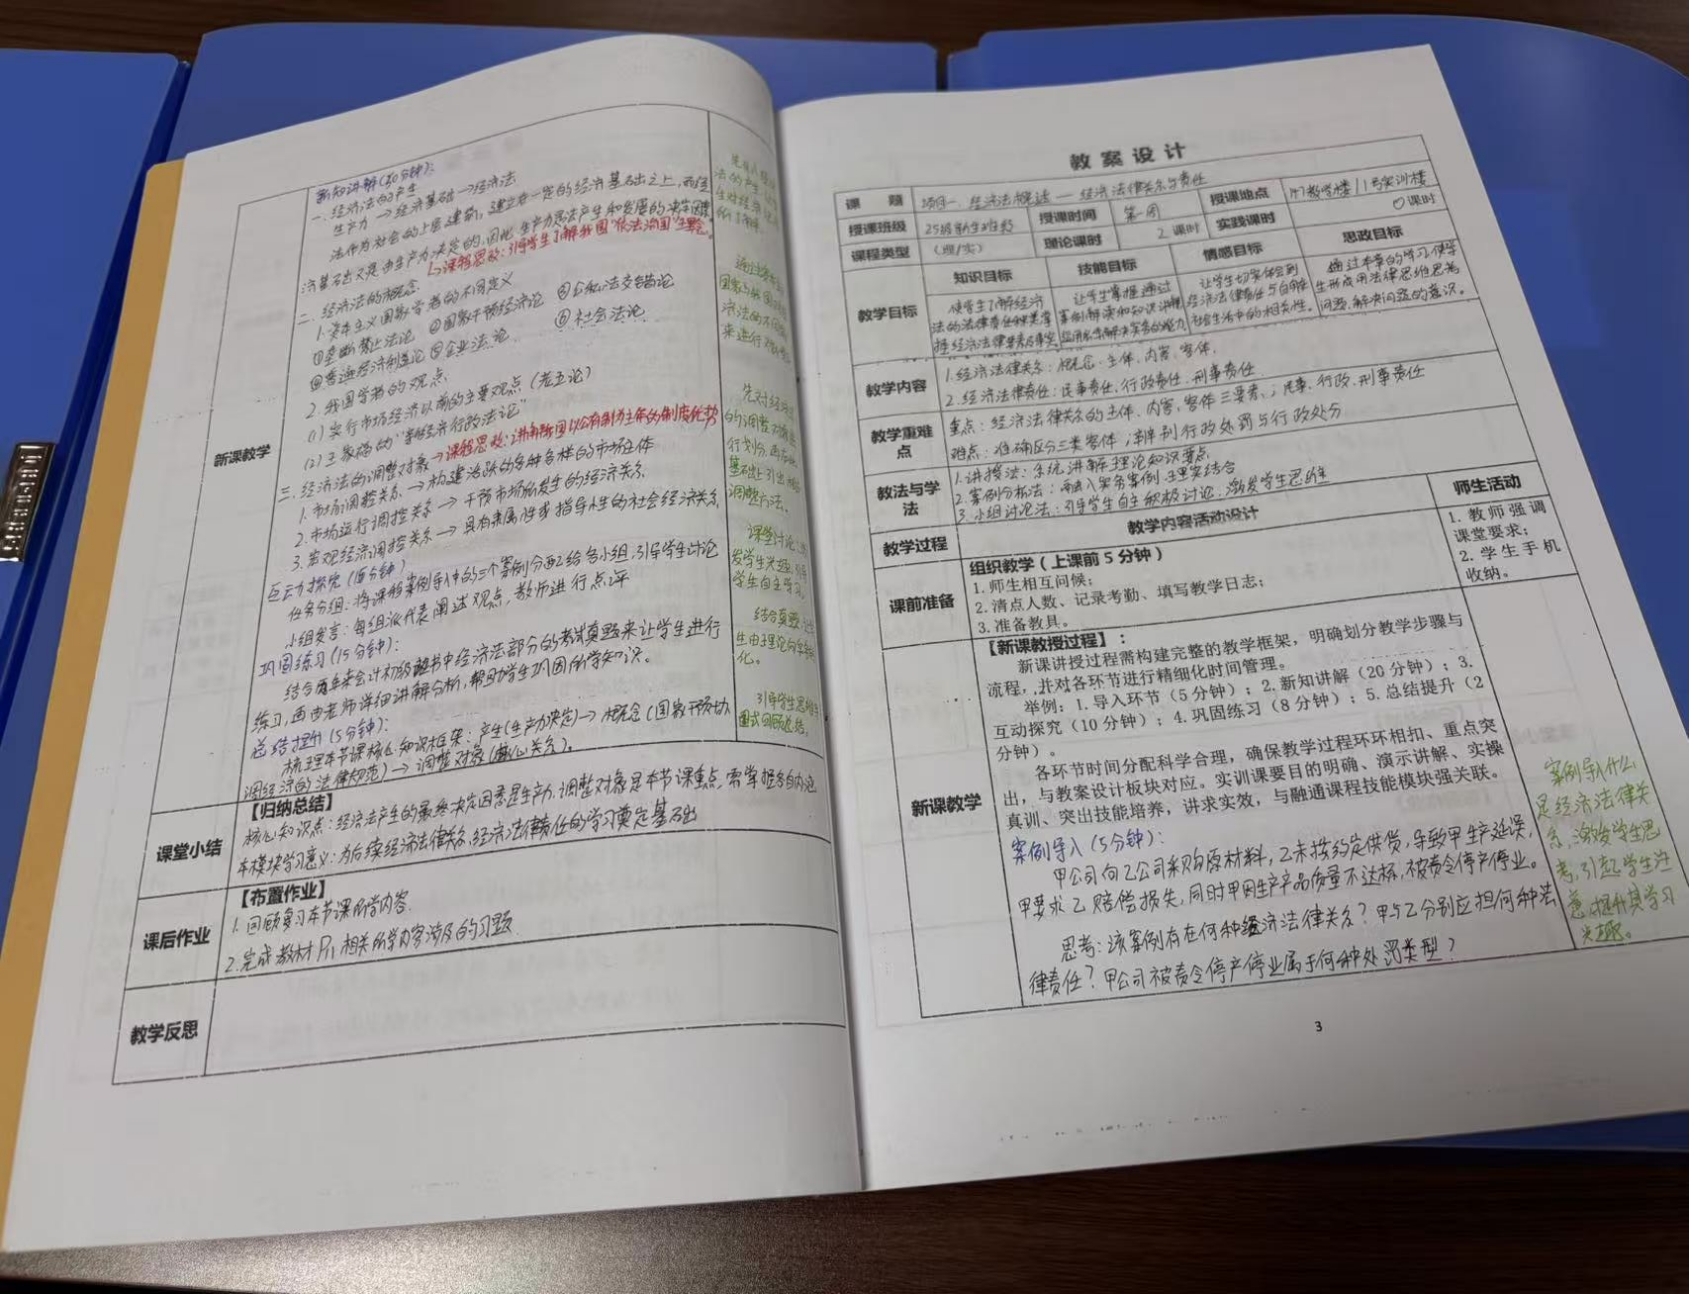 新知讲解(50分钟):
一. 经济法的产生
生产力 → 经济基础 → 经济法
法作为社会的上层建筑, 建立在一定的经济基础之上, 而经
济基础又是由生产力决定的, 因此生产力是法产生和发展的决定因素
↳ 课程思政: 引导学生了解我国"依法治国"主题。
二. 经济法的概念
1. 资本主义国家学者的不同定义
①垄断禁止法论 ②国家干预经济论 ③公私法交错论
④普遍经济利益论 ⑤企业法论 ⑥社会法论
2. 我国学者的观点
(1) 实行市场经济以前的主要观点 (老五论)
(2) 王家福的"经济行政法论"
三. 经济法的调整对象 → 课程思政: 讲解我国以公有制为主体的制度优势
1. 市场调控关系 → 构建活跃的各种各样的市场主体
2. 市场运行调控关系 → 干预市场所发生的经济关系
3. 宏观经济调控关系 → 具有隶属性或指导性的社会经济关系
互动探究(15分钟)
任务分组: 将课程案例导入中的三个案例分配给各小组, 引导学生讨论
小组发言: 每组派代表阐述观点, 教师进行点评
巩固练习(15分钟):
结合历年来会计初级证书中经济法部分的考试真题来让学生进行
练习, 再由老师详细讲解分析, 帮助学生巩固所学知识。
总结提升(5分钟):
梳理本节课核心知识框架: 产生(生产力决定) → 概念(国家干预协
调经济的法律规范) → 调整对象(核心关系)。
新课教学
先对经济
的调整对象
行划分, 再
基础上引出
调整方法。
课堂讨论
发学生
学生自主学习。
结合真题
生由理论向
化。
引导学生
图式回顾总结。
课堂小结
【归纳总结】
核心知识点: 经济法产生的最终决定因素是生产力, 调整对象是本节课重点, 需掌握各自内涵
本模块学习意义: 为后续经济法律关系、经济法律责任的学习奠定基础
课后作业
【布置作业】
1. 回顾复习本节课所学内容.
2. 完成教材P11相关所学内容涉及的习题
教学反思
教案设计
课 题 项目一. 经济法概述 — 经济法律关系与责任 授课地点 1#7教学楼/1号实训楼
授课班级 25级新生班级 授课时间 第一周 实践课时 0课时
课程类型 (理/实) 理论课时 2课时
教学目标 知识目标 技能目标 情感目标 思政目标
使学生了解经济
法的法律责任种类掌
握经济法律要素及事实
让学生掌握通过
案例解读和知识讲解
应用来解决实务的能力
让学生切实体会到
经济法律责任与自身
社会生活中的相关性。
通过本章的学习使学
生形成用法律思维思考
问题、解决问题的意识。
教学内容
1. 经济法律关系: 概念. 主体. 内容. 客体.
2. 经济法律责任: 民事责任. 行政责任. 刑事责任
教学重难点
重点: 经济法律关系的主体、内容、客体三要素; 民事、行政、刑事责任
难点: 准确区分三类客体; 辨别行政处罚与行政处分
教法与学法
1. 讲授法: 系统讲解理论知识要点
2. 案例分析法: 融入实务案例, 理实结合
3. 小组讨论法: 引导学生自主积极讨论. 激发学生思维
教学过程 教学内容活动设计 师生活动
课前准备
组织教学(上课前5分钟)
1. 师生相互问候;
2. 清点人数、记录考勤、填写教学日志;
3. 准备教具。
1. 教师强调
课堂要求;
2. 学生手机
收纳。
新课教学
【新课教授过程】:
新课讲授过程需构建完整的教学框架,明确划分教学步骤与
流程,并对各环节进行精细化时间管理。
举例:1. 导入环节(5分钟);2. 新知讲解(20分钟);3.
互动探究(10分钟);4. 巩固练习(8分钟);5. 总结提升(2
分钟)。
各环节时间分配科学合理,确保教学过程环环相扣、重点突
出,与教案设计板块对应。实训课要目的明确、演示讲解、实操
真训、突出技能培养,讲求实效,与融通课程技能模块强关联。
案例导入(5分钟):
甲公司向乙公司采购原材料, 乙未按约定供货, 导致甲生产延误,
甲要求乙赔偿损失, 同时甲因生产产品质量不达标, 被责令停产停业。
思考: 该案例存在何种经济法律关系? 甲与乙分别应担何种法
律责任? 甲公司被责令停产停业属于何种处罚类型?
案例导入什么
是经济法律关
系, 激发学生思
考, 引起学生注
意, 提升其学习
兴趣。
3